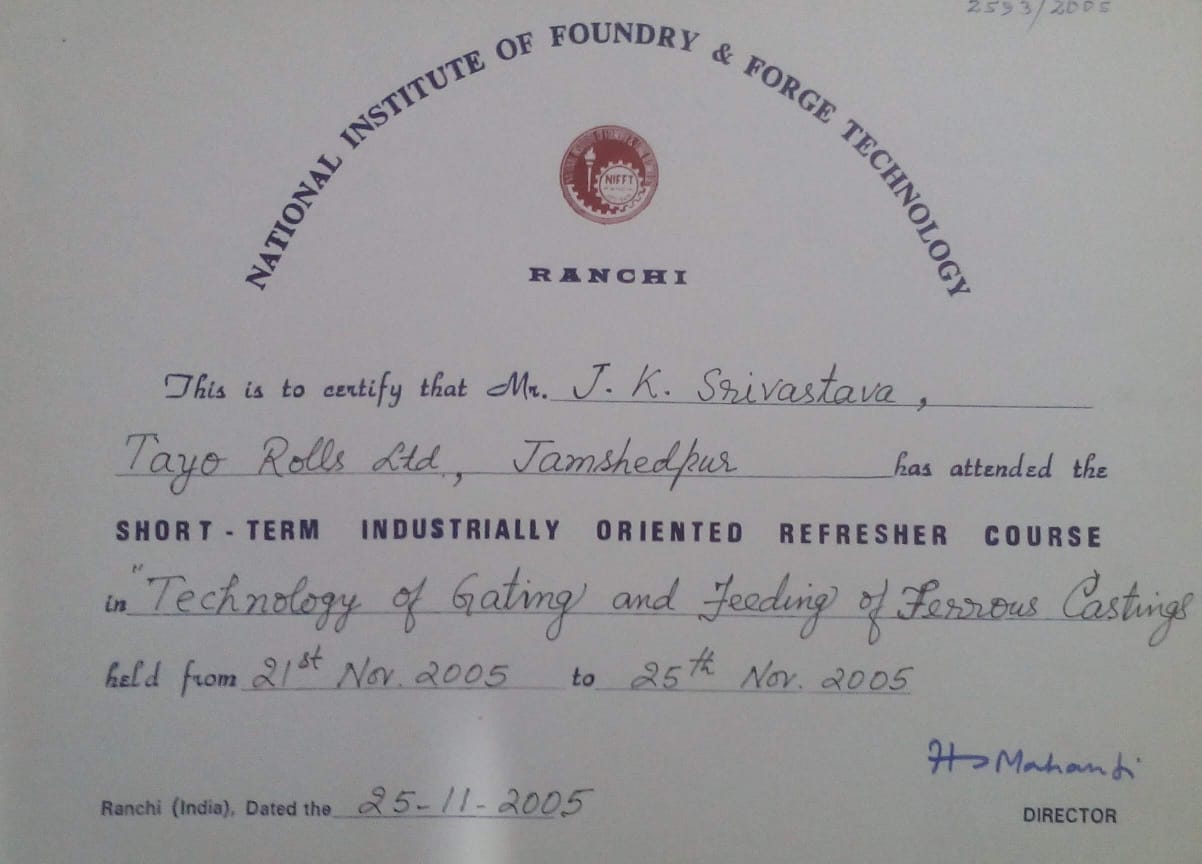 2593/2005
NATIONAL INSTITUTE OF FOUNDRY & FORGE TECHNOLOGY
NIFFT
RANCHI
This is to certify that Mr. J. K. Srivastava,
Tayo Rolls Ltd., Jamshedpur has attended the
SHORT-TERM INDUSTRIALLY ORIENTED REFRESHER COURSE
in "Technology of Gating and Feeding of Ferrous Castings
held from 21st Nov. 2005 to 25th Nov. 2005
Mahanti
Ranchi (India), Dated the 25-11-2005
DIRECTOR